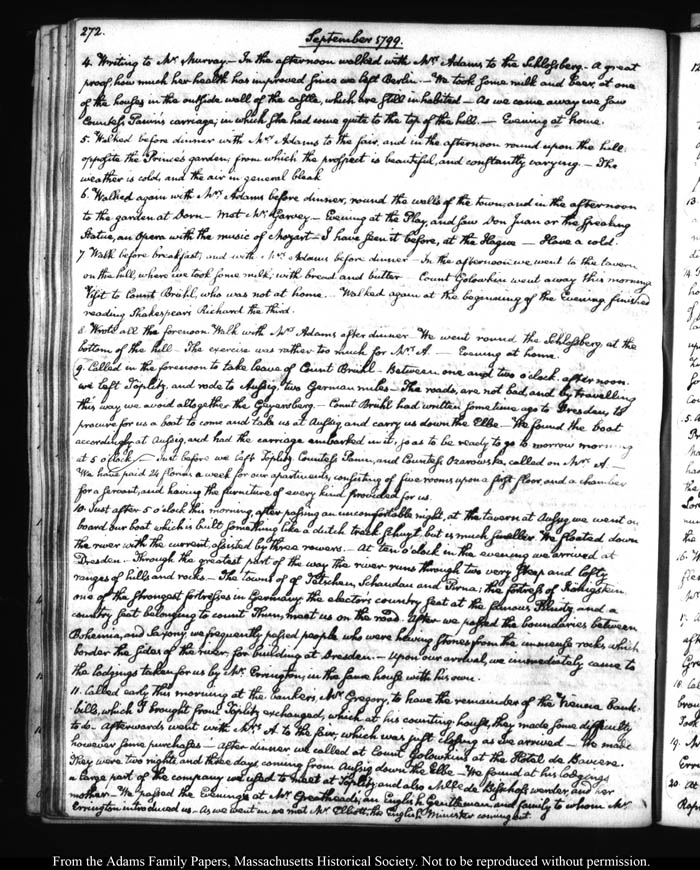 272.
September 1799.
4. Writing to Mr Murray — In the afternoon walked with Mrs Adams to the Schlossberg. A great
proof, how much her health has improved since we left Berlin. — We took some milk and beer, at one
of the houses in the outside wall of the castle, which are still inhabited — As we came away we saw
Countess Panin's carriage; in which she had come quite to the top of the hill. — Evening at home.
5. Walked before dinner with Mrs Adams to the fair, and in the afternoon round upon the hill
opposite the Prince's garden, from which the prospect is beautiful, and constantly varying. — The
weather is cold, and the air in general bleak
6. Walked again with Mrs Adams before dinner, round the walls of the town, and in the afternoon
to the garden at Dorn — Met Mr Garvey — Evening at the Play, and saw Don Juan or the speaking
statue, an Opera with the music of Mozart — I have seen it before, at the Hague — Have a cold.
7 Walk before breakfast; and with Mrs Adams before dinner — In the afternoon we went to the tavern
on the hill, where we took some milk, with bread and butter — Count Golowkin went away this morning
Visit to Count Brühl, who was not at home. — Walked again at the beginning of the Evening finished
reading Shakespears Richard the third.
8 Wrote all the forenoon. Walk with Mrs Adams after dinner. We went round the Schlossberg, at the
bottom of the hill — The exercise was rather too much for Mrs A. — Evening at home.
9. Called in the forenoon to take leave of Count Bruhl — Between one and two o'clock afternoon.
we left Töplitz, and rode to Aussig, two German miles — The roads, are not bad, and by travelling
this way we avoid altogether the Geyersberg. — Count Brühl had written some time ago to Dresden, to
procure for us a boat to come and take us at Aussig and carry us down the Elbe — We found the boat
accordingly at Aussig, and had the carriage embarked in it, so as to be ready to go to morrow morning
at 5 o'clock — Just before we left Töplitz Countess Panin, and Countess Ozarowska, called on Mrs A. —
We have paid 24 florins a week for our apartments, consisting of five rooms upon a first floor, and a chamber
for a servant, and having the furniture of every kind provided for us.
10. Just after 5 o'clock this morning, after passing an uncomfortable night, at the tavern at Aussig, we went on
board our boat which is built something like a dutch treck schuyt, but is much smaller We floated down
the river with the current, assisted by three rowers — At ten o'clock in the evening we arrived at
Dresden — Through the greatest part of the way the river runs through two very steep and lofty
ranges of hills and rocks — The towns of of Tetschen, Schandau and Pirna; the fortress of Königstein
one of the strongest fortresses in Germany, the elector's country seat at the famous Pillnitz, and a
country seat belonging to count Thun, meet us on the road. After we passed the boundaries between
Bohemia, and Saxony, we frequently passed people who were hewing stones from the immense rocks which
border the sides of the river, for building at Dresden — Upon our arrival, we immediately came to
the lodgings taken for us by Mr Errington, in the same house with his own.
11. Called early this morning at the bankers, Mr Gregory, to have the remainder of the Vienna bank-
bills, which I brought from Töplitz exchanged, which at his counting house, they made some difficulty
to do. Afterwards went with Mrs A to the fair, which was just closing as we arrived — We made
however some purchases — After dinner we called at Count Golowkins at the Hotel de Baviere.
They were two nights and three days coming from Aussig down the Elbe — We found at his lodgings
a large part of the company we used to meet at Töplitz, and also Mlle de Bischofswerder, and her
mother — We passed the Evening at Mr Greatheads, an English Gentleman and family to whom Mr
Errington introduced us — As we went in we met Mr Elliott, the English Minister coming out.
From the Adams Family Papers, Massachusetts Historical Society. Not to be reproduced without permission.